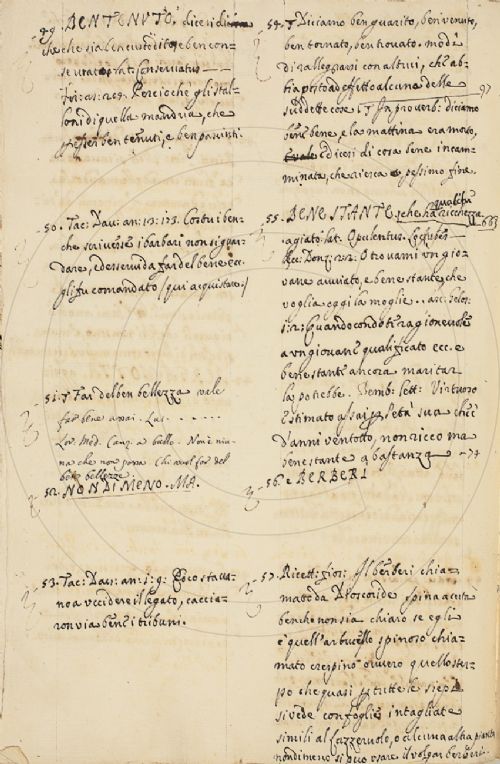 49. BEN TENUTO, dicesi di
che che sia ben custodito, e ben con-
servato. lat: Conservatus
for: as: 209. Perciochè gli stal-
loni di quella mandria, che
p esser ben tenuti, e ben pasciuti.
50. Tac: Dav: an: 13: 173. Costui ben-
chè scrivesse i barbari non si guar-
dare, ed esservi da far del bene ecc.
gli fu comandato
51. § Far del ben bellezza vale
far bene assai. Las.
Lor. Med. Canz. a ballo. Non è niu-
na che non possa Chi vuol far del
ben bellezze.
52. NONDIMENO. MA.
53. Tac: Dav: an: 1: 9: Poco stava-
no a uccidere il legato, caccia-
ron via bensì i tribuni.
54. § Diciamo ben guarito, ben venuto,
ben tornato, ben trovato. modi
di rallegrarsi con altrui, ch'ab-
bia posto ad effetto alcuna delle
suddette cose. § In proverb: diciamo 97
bene bene, e la mattina era morto,
e dicesi di cosa bene incam-
minata, che riesca a pessimo fine.
55. BENESTANTE, che ha qualche ricchezza 663
agiato. lat. Opulentus. Locuples
Donz: 212. O trovami un gio-
vane avviato, e benestante, che
voglia oggi la moglie.
Quando con dote ragionevole
a un giovane qualificato ecc. e
benestante ancora maritar
la potrebbe. Bembi lett: Virtuoso
e stimato assai p l'età sua ch'è
d'anni ventotto, non ricco ma
benestante a bastanza 74
56. e BERBERI
57. Ricett: fior: Il berberi chia-
mato da Dioscoride spina acuta
benchè non sia chiaro se egli
è quell'arbucello spinoso chia-
mato crespino ovvero quello ster-
po che quasi p tutte le siepi
si vede con foglie intagliate
simili al lazzeruolo, o alcuna altra pianta
nondimeno si può usare il volgar berberi.